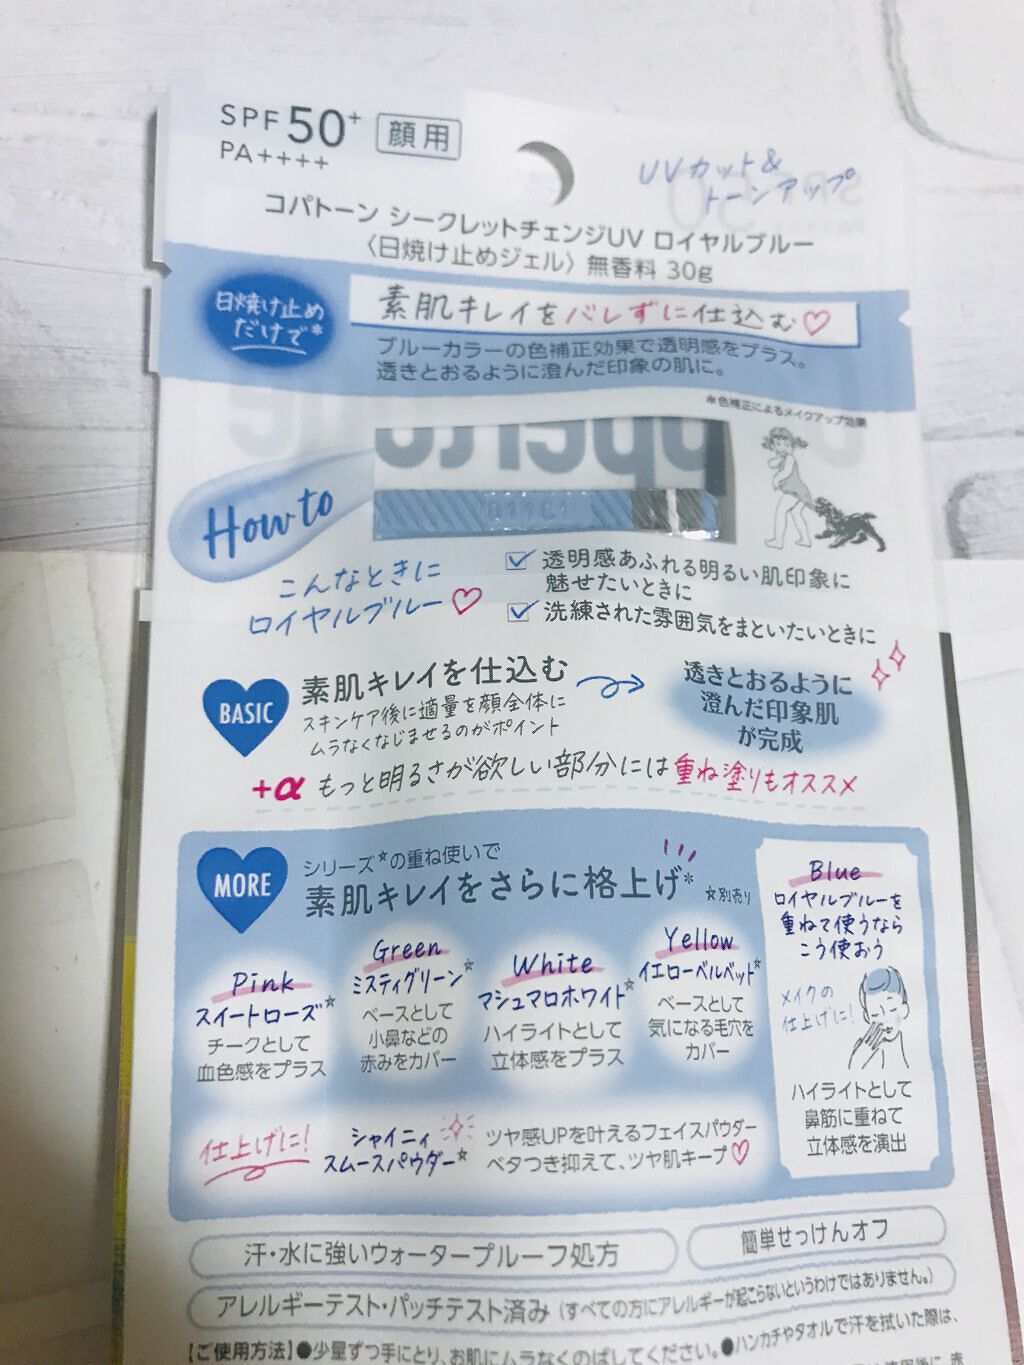 SPF 50+
PA++++
顔用
UVカット&
トーンアップ
コパトーン シークレットチェンジUV ロイヤルブルー
〈日焼け止めジェル〉無香料 30g
日焼け止め
だけで*
素肌キレイをバレずに仕込む♡
ブルーカラーの色補正効果で透明感をプラス。
透きとおるように澄んだ印象の肌に。
*色補正によるメイクアップ効果
How to
こんなときに
ロイヤルブルー♡
透明感あふれる明るい肌印象に
魅せたいときに
洗練された雰囲気をまといたいときに
BASIC
素肌キレイを仕込む
スキンケア後に適量を顔全体に
ムラなくなじませるのがポイント
透きとおるように
澄んだ印象肌
が完成
+α もっと明るさが欲しい部分には重ね塗りもオススメ
MORE
シリーズ☆の重ね使いで
素肌キレイをさらに格上げ*
☆別売り
Pink
スイートローズ☆
チークとして
血色感をプラス
Green
ミスティグリーン☆
ベースとして
小鼻などの
赤みをカバー
White
マシュマロホワイト☆
ハイライトとして
立体感をプラス
Yellow
イエローベルベット☆
ベースとして
気になる毛穴を
カバー
Blue
ロイヤルブルーを
重ねて使うなら
こう使おう
メイクの
仕上げに!
ハイライトとして
鼻筋に重ねて
立体感を演出
仕上げに!
シャイニィ
スムースパウダー☆
ツヤ感UPを叶えるフェイスパウダー
ベタつき抑えて、ツヤ肌キープ♡
汗・水に強いウォータープルーフ処方
簡単せっけんオフ
アレルギーテスト・パッチテスト済み (すべての方にアレルギーが起こらないというわけではありません。)
【ご使用方法】●少量ずつ手にとり、お肌にムラなくのばしてください。●ハンカチやタオルで汗を拭いた際は、